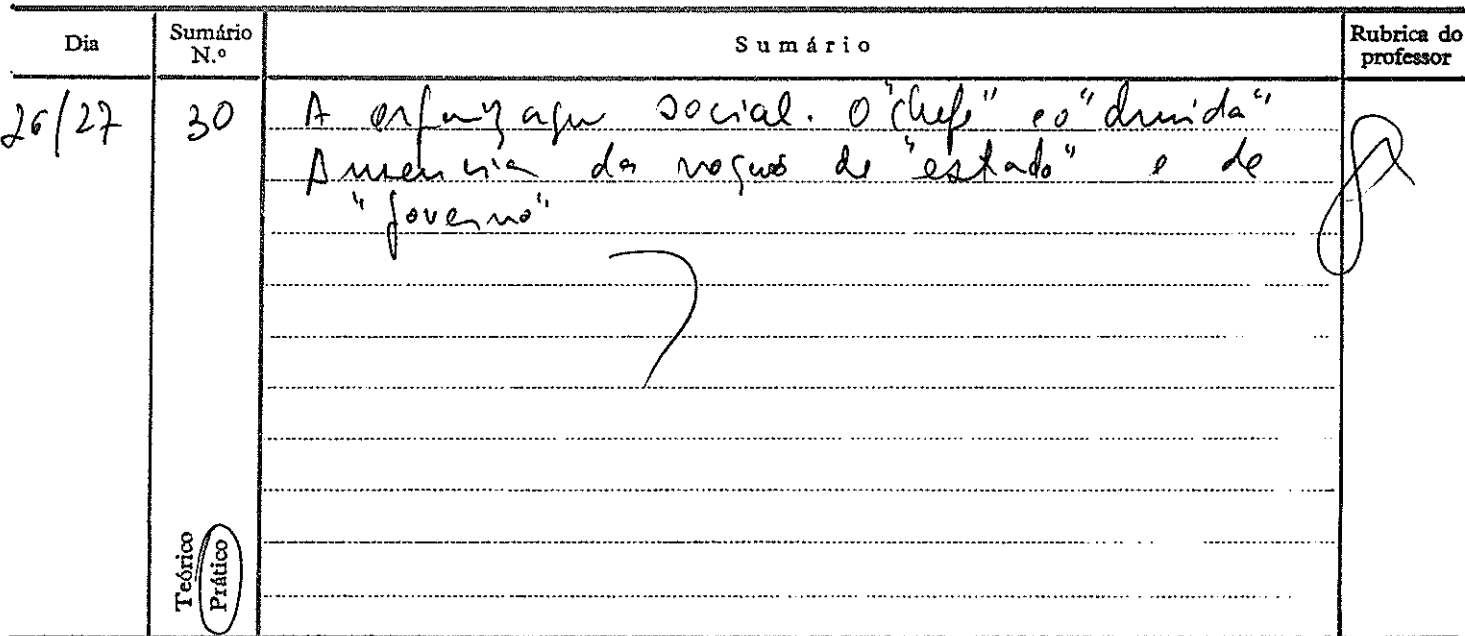 Dia
Sumário N.º
Sumário
Rubrica do professor
26/27
30
A organização social. O "chefe" e o "druida"
Ausência das noções de "estado" e de
"governo"
Teórico
Prático